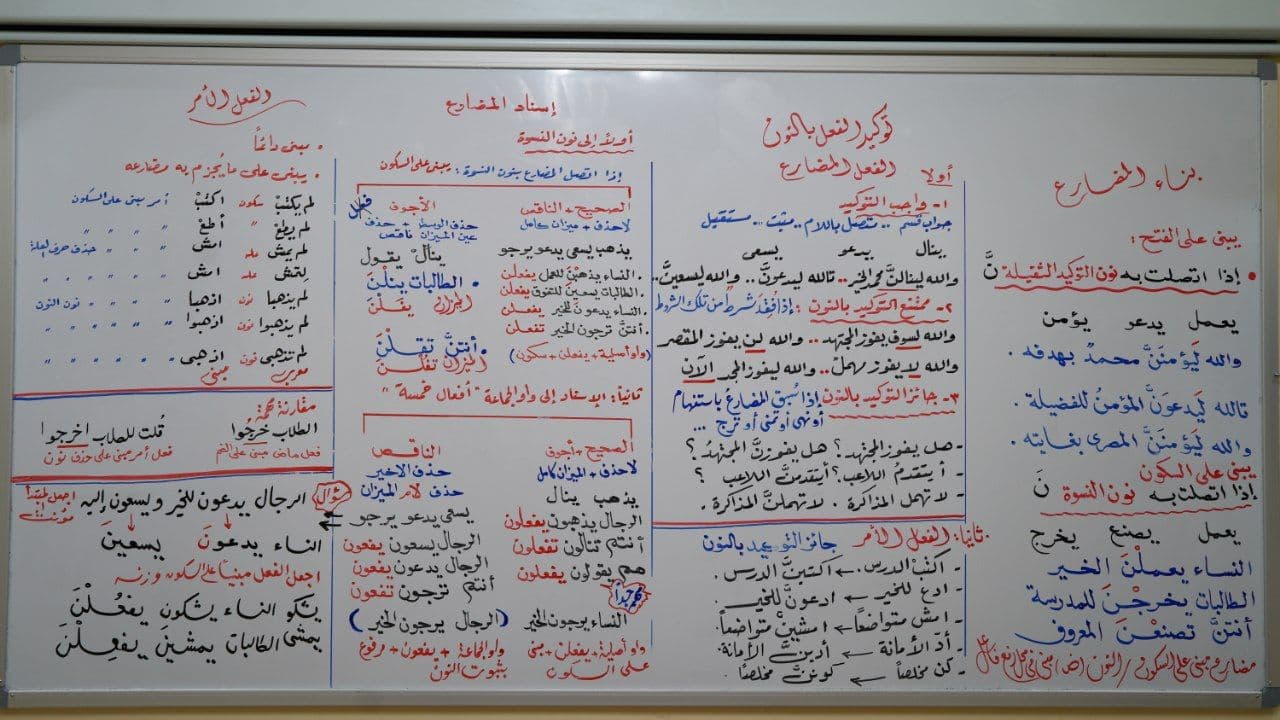 بناء المضارع
يبنى على الفتح :
• إذا اتصلت به نون التوكيد الثقيلة نَّ
يعمل يدعو يؤمن
والله لَيؤمَنَّ محمدٌ بهدفه .
تالله لَيدعوَنَّ المؤمنُ للفضيلة .
والله لَيؤمَنَّ المصرى بغايته .
يبنى على السكون
إذا اتصلت به نون النسوة نَ
يعمل يصنع يخرج
النساء يعملْنَ الخير
الطالبات يخرجْنَ للمدرسة
أنتنَّ تصنعْنَ المعروف
مضارع مبنى على السكون / النون (ض) مبنى فى محل رفع فاعل
توكيد الفعل بالنون
أولا الفعل المضارع
١- واجب التوكيد
جواب قسم .. متصل باللام .. مثبت .. مستقبل
ينال يدعو يسعى
والله لينالنَّ محمدٌ الخير .. تالله ليدعونَّ .. والله ليسعينَّ ..
٢- ممتنع التوكيد بالنون : إذا فُقِدَ شرطٌ من تلك الشروط
والله لسوف يفوز المجتهد .. والله لن يفوز المقصر
والله لا يفوز مهملٌ .. والله ليفوز المجد الآن
٣- جائز التوكيد بالنون إذا سُبِق المضارع باستفهام
أو نهى أو تمنى أو ترج ...
- هل يفوز المجتهد ؟ هل يفوزنَّ المجتهدُ ؟
- أيتقدمُ اللاعب ؟ أيتقدمنَّ اللاعب ؟
- لا تهمل المذاكرة . لا تهملنَّ المذاكرة .
ثانيًا : الفعل الأمر جائز التوكيد بالنون
- اكتبْ الدرس . ← اكتبنَّ الدرس .
- ادع للخير ← ادعونَّ للخير .
- امش متواضعاً ← امشينَّ متواضعاً .
- أدّ الأمانة ← أدينَّ الأمانة .
- كن مخلصاً ← كوننَّ مخلصًا .
إسناد المضارع
أولاً إلى نون النسوة
إذا اتصل المضارع بنون النسوة : يبنى على السكون
الصحيح + الناقص
لا حذف + ميزان كامل
يذهب يسعى يدعو يرجو
. النساء يذهبْنَ للعمل يفعلْن
. الطالبات يسعيْنَ للتفوق يفعلْن
. النساء يدعونَ للخير يفعلن
. أنتنَّ ترجون الخير تفعلن
(واو أصلية + يفعلن + سكون)
الأجوف
حذف الوسط + حذف
عين الميزان ناقص
ينال يقول
• الطالبات ينلْنَ
الميزان يفَلْنَ
• أنتنَّ تقلْنَ
الميزان تفُلْنَ
ثانيًا : الإسناد إلى واو الجماعة " أفعال خمسة "
الصحيح + أجوف
لا حذف + الميزان كامل
يذهب ينال
الرجال يذهبون يفعلون
أنتم تنالون تفعلون
هم يقولون يفعلون
النساء يرجون الخير
واو أصلية + يفعلن + مبنى
على السكون
الناقص
حذف الأخير
حذف لام الميزان
يسعى يدعو يرجو
الرجال يسعون يفعون
الرجال يدعون يفعون
أنتم ترجون تفعون
(الرجال يرجون الخير)
واو الجماعة + يفعون + مرفوع
بثبوت النون
الفعل الأمر
• يبنى دائمًا
• يبنى على ما يُجزم به مضارعه
لم يكتبْ سكون اكتُبْ أمر مبنى على السكون
لم يطعْ " أطعْ " " " "
لم يمش علة امش " " حذف حرف العلة
علة امش " " " "
لم يذهبا نون اذهبا " " نون النون
لم يذهبوا نون اذهبوا " " " "
لم تذهبى نون اذهبى " " " "
معرب مبنى
مقارنة مهمة
الطلاب خرجُوا قلت للطلاب اخرجوا
فعل ماض مبنى على الضم فعل أمر مبنى على حذف نون
سؤال الرجال يدعون للخير ويسعون إليه اجعل المبتدأ مؤنث !!
النساء يدعونَ يسعينَ
اجعل الفعل مبنياً على السكون وزنه
يشكو النساء يشكون يفعُلْنَ
يمشى الطالبات يمشينَ يفعِلْنَ